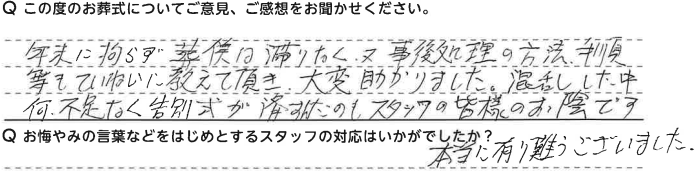 Q この度のお葬式についてご意見、ご感想をお聞かせください。
年末に拘らず葬儀は滞りなく、又事後処理の方法、手順
等もていねいに教えて頂き、大変助かりました。混乱した中
何不足なく告別式が済すたのも、スタッフの皆様のお陰です
Q お悔やみの言葉などをはじめとするスタッフの対応はいかがでしたか？
本当に有り難うございました。